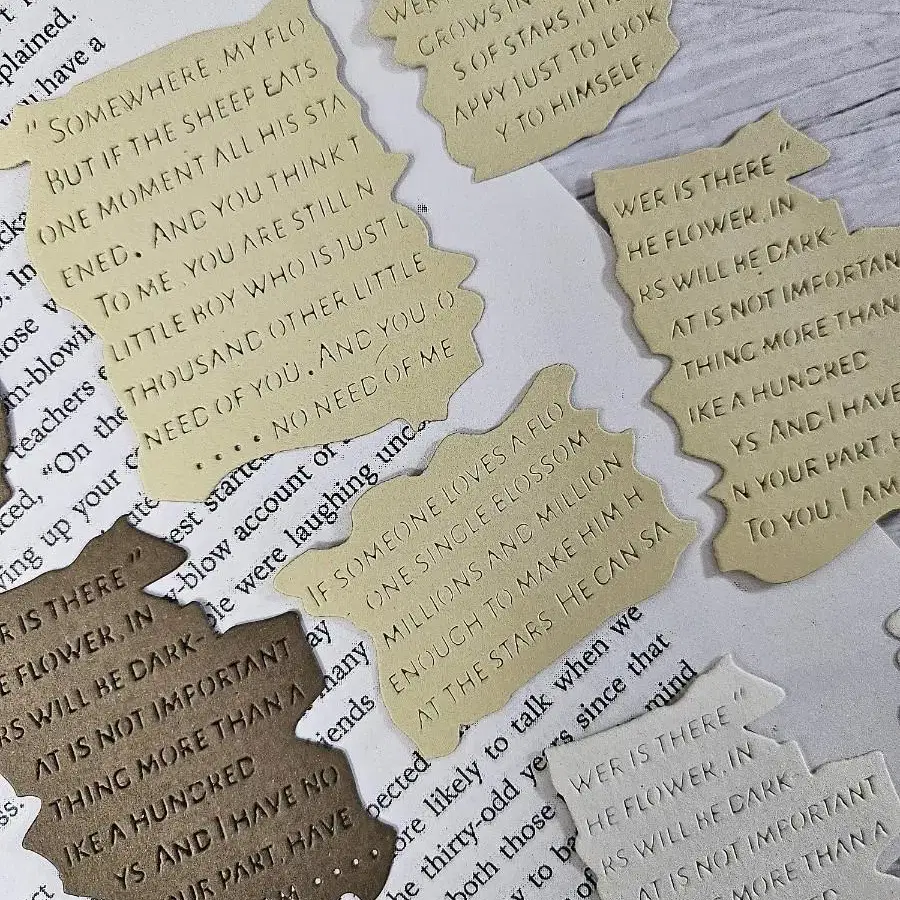 " SOMEWHERE , MY FLO
BUT IF THE SHEEP EATS
ONE MOMENT ALL HIS STA
ENED. AND YOU THINK T
TO ME , YOU ARE STILL N
LITTLE BOY WHO IS JUST L
THOUSAND OTHER LITTLE
NEED OF YOU . AND YOU , O
. . . . NO NEED OF ME
GROWS IN
S OF STARS, IT IS
APPY JUST TO LOOK
Y TO HIMSELF ,
WER IS THERE "
HE FLOWER, IN
RS WILL BE DARK-
AT IS NOT IMPORTAN
THING MORE THAN
IKE A HUNDRED
YS AND I HAVE
N YOUR PART, H
TO YOU, I AM
IF SOMEONE LOVES A FLO
ONE SINGLE BLOSSOM
MILLIONS AND MILLION
ENOUGH TO MAKE HIM H
AT THE STARS HE CAN SA
R IS THERE "
E FLOWER, IN
RS WILL BE DARK-
AT IS NOT IMPORTANT
THING MORE THAN A
IKE A HUNDRED
YS AND I HAVE NO
OUR PART, HAVE
WER IS THERE "
HE FLOWER, IN
RS WILL BE DARK-
AT IS NOT IMPORTANT
MORE THAN A
plained.
u have a
. In
hose
m-blowin
teachers
ced, "On the
ing up your
est starte
-blow account of
le were laughing unc
many
iends
pected
ore likely to talk when we
he thirty-odd years since that
both those
mind
y to ba